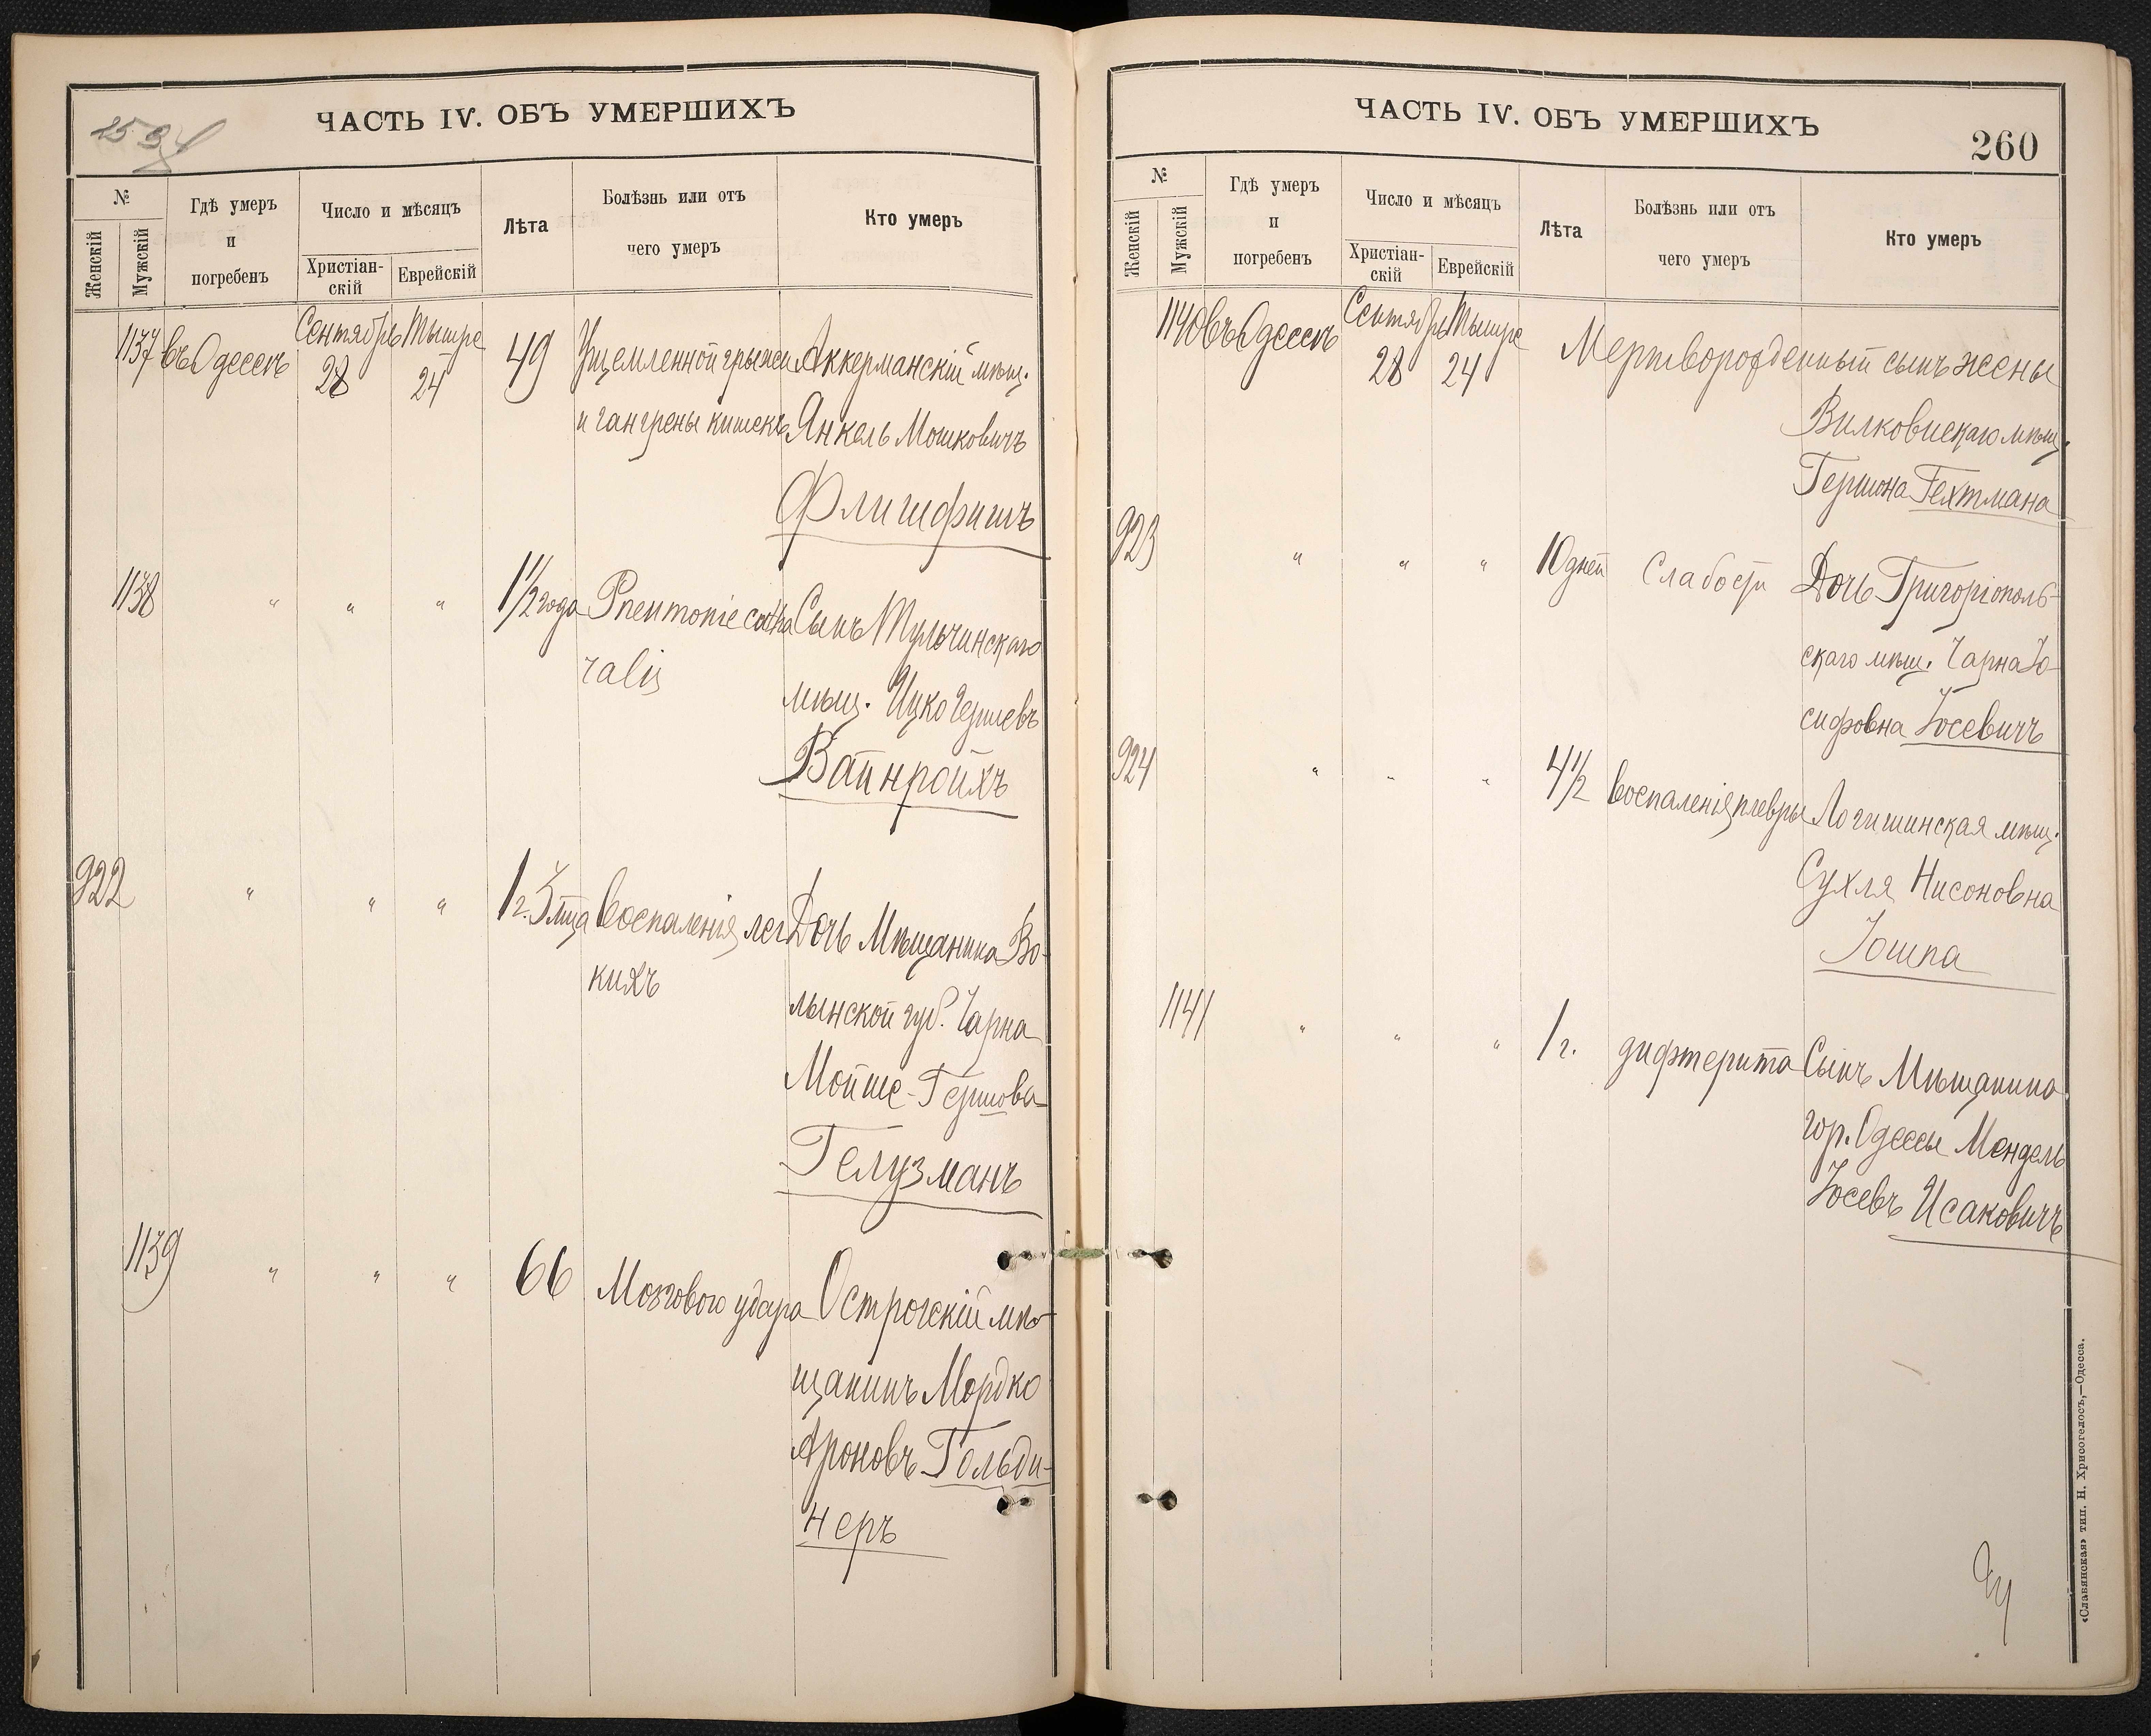 ЧАСТЬ IV. ОБЪ УМЕРШИХЪ
№
Женскій
Мужскій
Гдѣ умеръ
и
погребенъ
Число и мѣсяцъ
Христіан-
скій
Еврейскій
Лѣта
Болѣзнь или отъ
чего умеръ
Кто умеръ
1137 въ Одессѣ Сентябрь 28 Тышре 24 49 Ущемленной грыжи Аккерманскій мѣщ.
и гангрены кишекъ Янкель Мошковичъ
Флишфишъ
1138 " " " 1 1/2 года Pneumonie catha Сынъ Тульчинскаго
ralis мѣщ. Ицко Гершевъ
Вайнройхъ
922 " " " 1 г. 3 мца Воспаленія лег Дочь Мѣщанина Во-
кихъ лынской губ. Чарна
Мойше-Гершова
Гелузманъ
1139 " " " 66 Мозгового удара Острогскій мѣ-
щанинъ Мордко
Ароновъ Гольди-
неръ
ЧАСТЬ IV. ОБЪ УМЕРШИХЪ
260
№
Женскій
Мужскій
Гдѣ умеръ
и
погребенъ
Число и мѣсяцъ
Христіан-
скій
Еврейскій
Лѣта
Болѣзнь или отъ
чего умеръ
Кто умеръ
1140 въ Одессѣ Сентябрь 28 Тышре 24 Мертворожденный сынъ жены
Вилковискаго мѣщ.
Гершона Гехтмана
923 " " " 10 дней Слабости Дочь Григоріополь-
скаго мѣщ. Чарна Іо-
сифовна Іосевичъ
924 " " " 4 1/2 воспаленія плевры Логишинская мѣщ.
Сухля Нисоновна
Іошпа
1141 " " " 1 г. дифтерита Сынъ Мѣщанина
гор. Одессы Мендель
Іосевъ Исаковичъ
«Славянская» тип. Н. Хрисогелосъ,—Одесса.